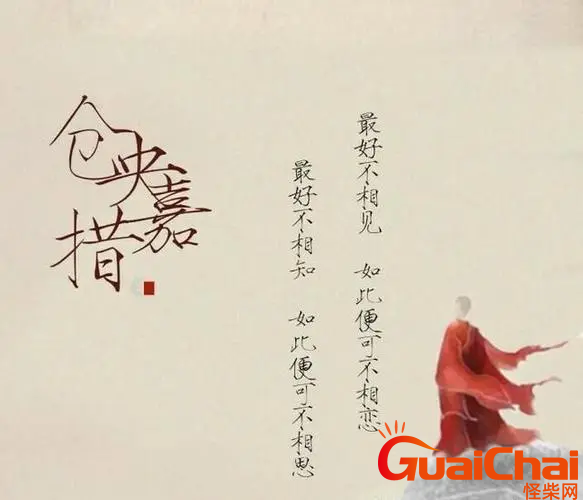 仓央嘉措
最好不相见 如此便可不相恋
最好不相知 如此便可不相思
GuaiChai
怪柴网